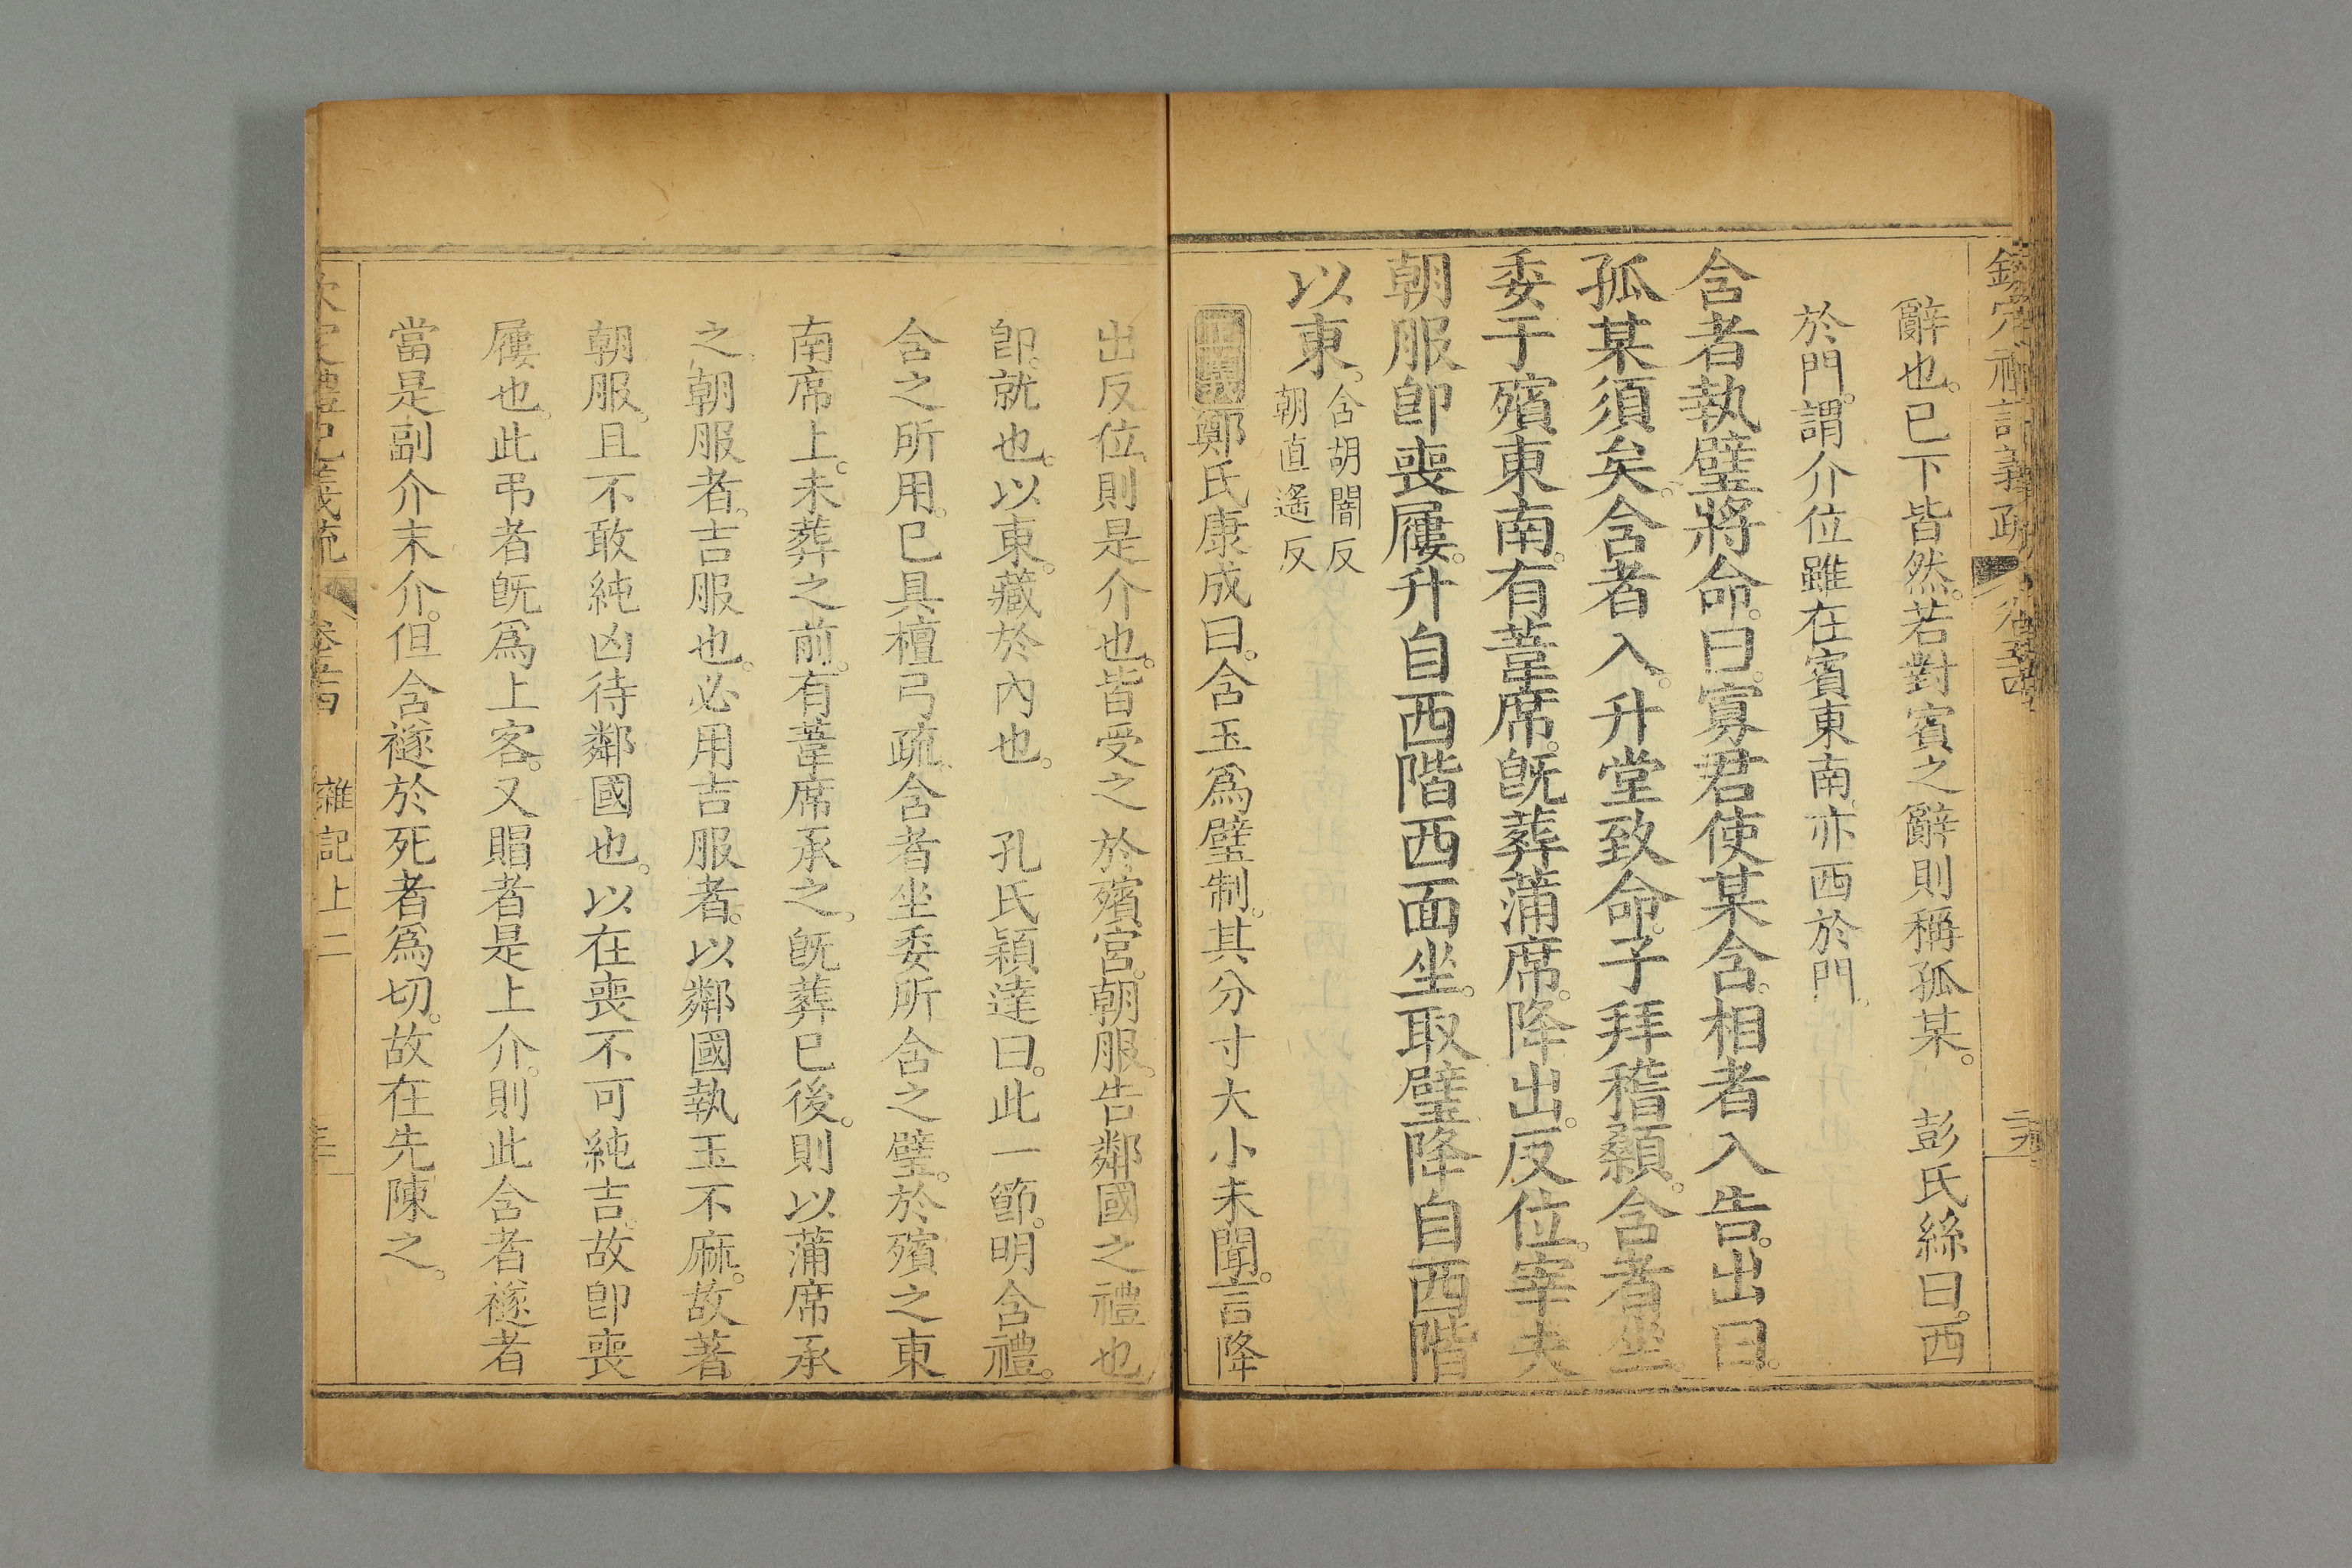 辭也。已下皆然。若對賓之辭則稱孤某。　彭氏絲曰。西
於門。謂介位雖在賓東南。亦西於門。
含者執璧將命。曰。寡君使某含。相者入告。出曰。
孤某須矣。含者入。升堂致命。子拜稽顙。含者坐。
委于殯東南。有葦席。旣葬蒲席。降出。反位。宰夫
朝服卽喪屨。升自西階西面坐。取璧降自西階
以東。含胡闇反
朝直遙反
正義鄭氏康成曰。含玉爲璧制。其分寸大小未聞。言降
出反位。則是介也。皆受之於殯宮。朝服。告鄰國之禮也
卽。就也。以東。藏於內也。　孔氏穎達曰。此一節。明含禮。
含之所用。已具檀弓疏。含者坐委所含之璧。於殯之東
南席上。未葬之前。有葦席承之。旣葬已後。則以蒲席承
之。朝服者。吉服也。必用吉服者。以鄰國執玉不麻。故著
朝服。且不敢純凶待鄰國也。以在喪不可純吉。故卽喪
屨也。此弔者旣爲上客。又賵者是上介。則此含者襚者
當是副介末介。但含襚於死者爲切。故在先陳之。
雜記上二